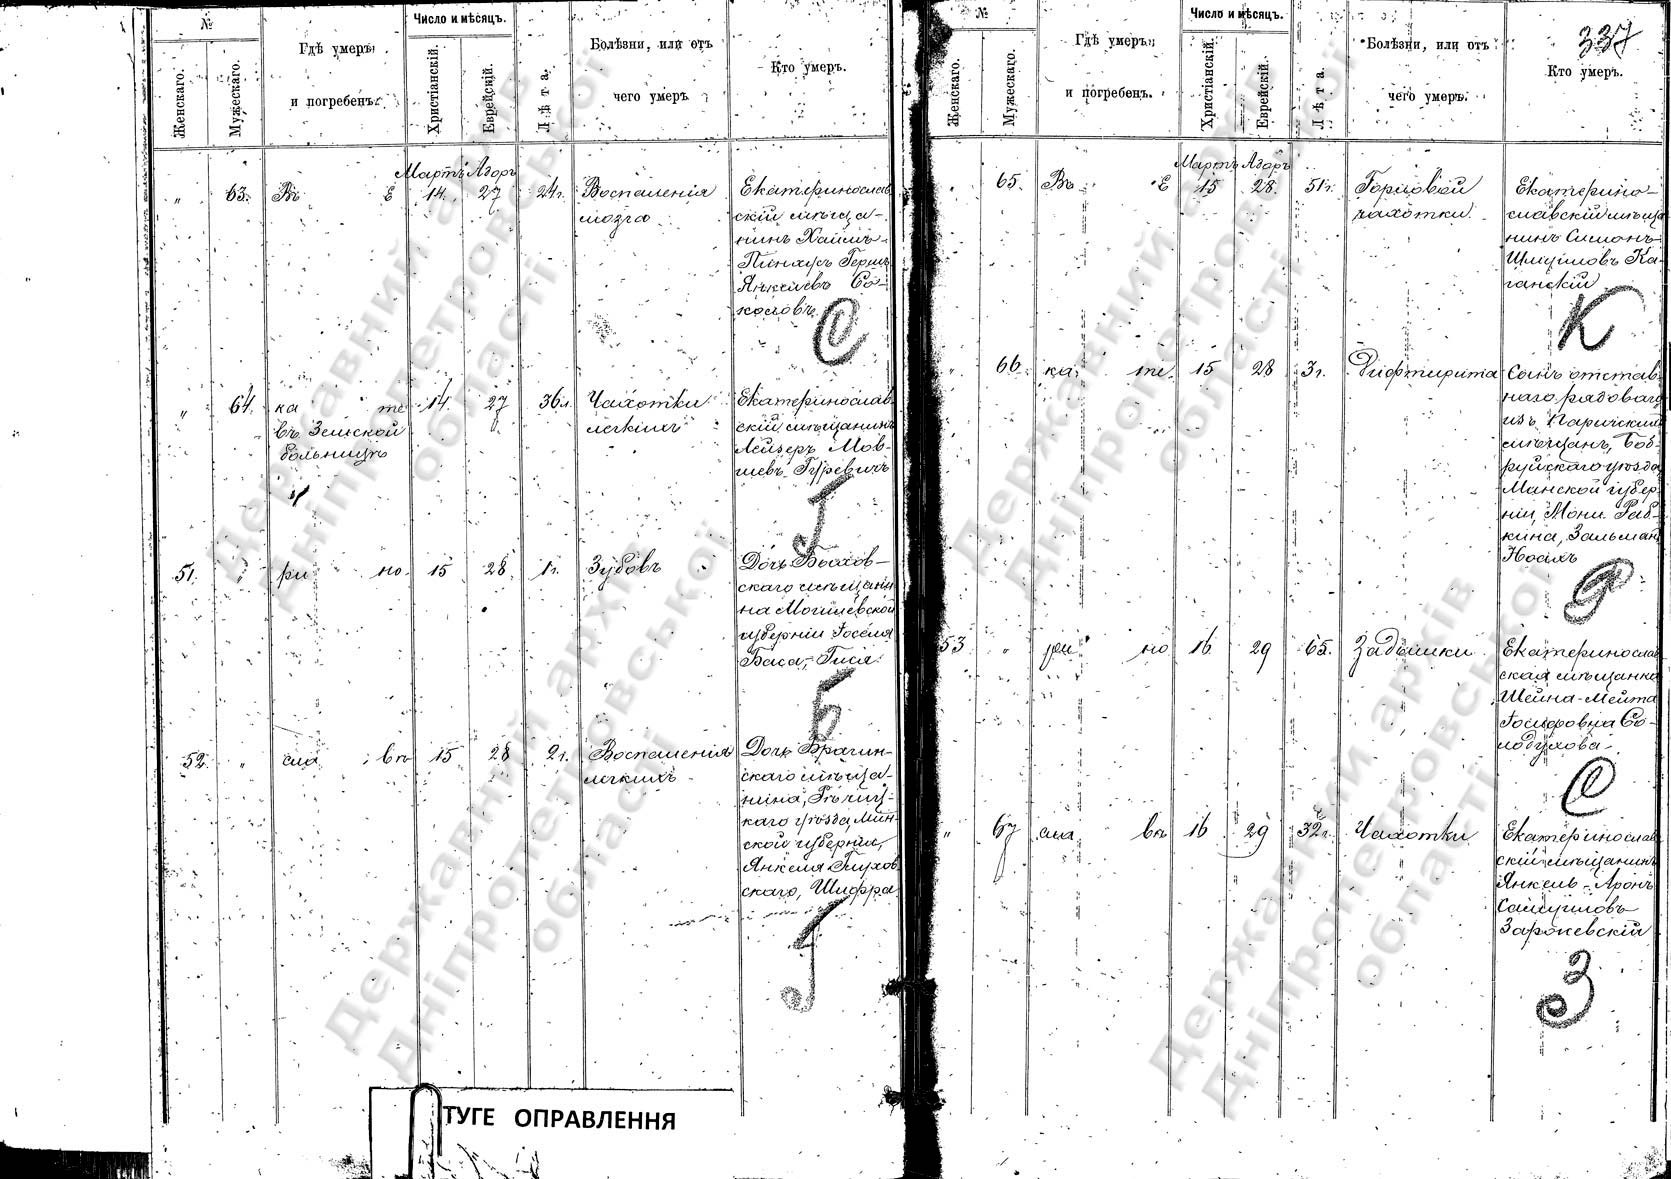 №
Женскаго.
Мужескаго.
Гдѣ умеръ
и погребенъ.
Число и мѣсяцъ.
Христіанскій.
Еврейскій.
Лѣта.
Болѣзни, или отъ
чего умеръ
Кто умеръ.
Мартъ Адоръ
„ 63. Въ Е 14. 27 24 г. Воспаленія
мозга
Екатеринослав
скій мѣща-
нинъ Хаимъ-
Пинхусъ Гершъ
Янкелевъ Со-
коловъ
С
„ 64. ка те 14. 27 36 л. Чахотки
въ Земской
больницѣ
легкихъ
Екатеринослав
скій мѣщанинъ
Лейзеръ Мов-
шевъ Гуревичъ
Г
51. „ ри но 15 28 1 г. Зубовъ
Дочь Быхов-
скаго мѣщани
на Могилевской
губерніи Іоселя
Баса, Гися
Б
52 „ сла вѣ 15 28 2 г. Воспаленія
легкихъ
Дочь Брагин-
скаго мѣща-
нина, Рѣчиц-
каго уѣзда, Мин-
ской губерніи,
Янкеля Глухов
скаго, Шифра
Г
ТУГЕ ОПРАВЛЕННЯ
337
№
Женскаго.
Мужескаго.
Гдѣ умеръ
и погребенъ.
Число и мѣсяцъ.
Христіанскій.
Еврейскій.
Лѣта.
Болѣзни, или отъ
чего умеръ.
Кто умеръ.
Мартъ Адоръ
„ 65. Въ Е 15 28 51 г. Горловой
чахотки
Екатерино-
славскій мѣща
нинъ Симонъ
Шмуиловъ Ка-
ганскій
К
„ 66 ка те 15 28 3 г. Дифтирита
Сынъ отстав-
наго рядоваго
изъ Паричскихъ
мѣщанъ, Боб-
руйскаго уѣзда
Минской губер-
ніи, Мони Раб-
кина, Зальман
Носихъ
Р
53 „ ри но 16 29 65. Задышки
Екатеринослав
ская мѣщанка
Шейна-Мейта
Іосифовна Со-
лодухова
С
„ 67 сла вѣ 16 29 32 г. Чахотки
Екатеринослав
скій мѣщанинъ
Янкель-Аронъ
Самуиловъ
Зарокевскій
З
Державний архів
Дніпропетровської
області